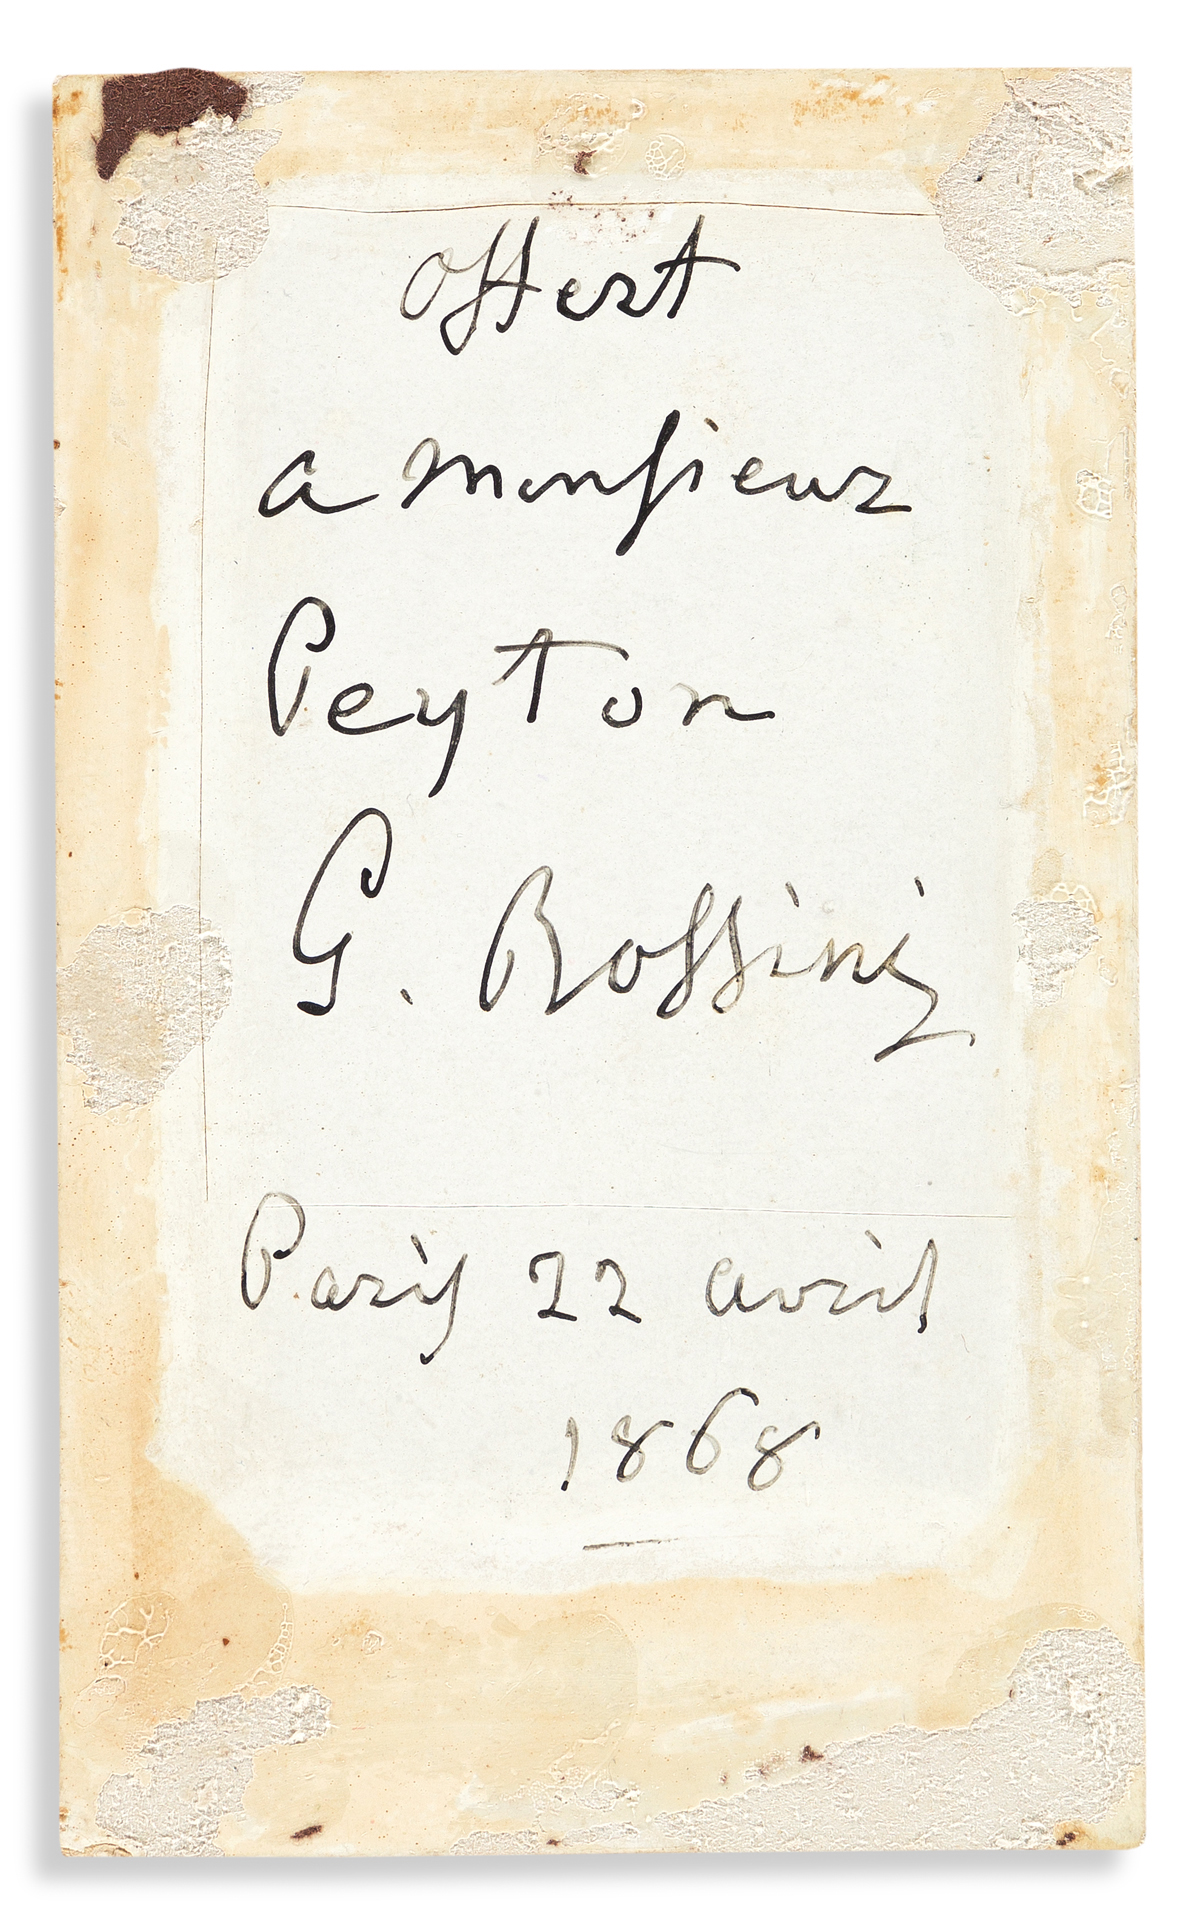 Offert
a monsieur
Peyton
G. Rossini
Paris 22 avril
1868